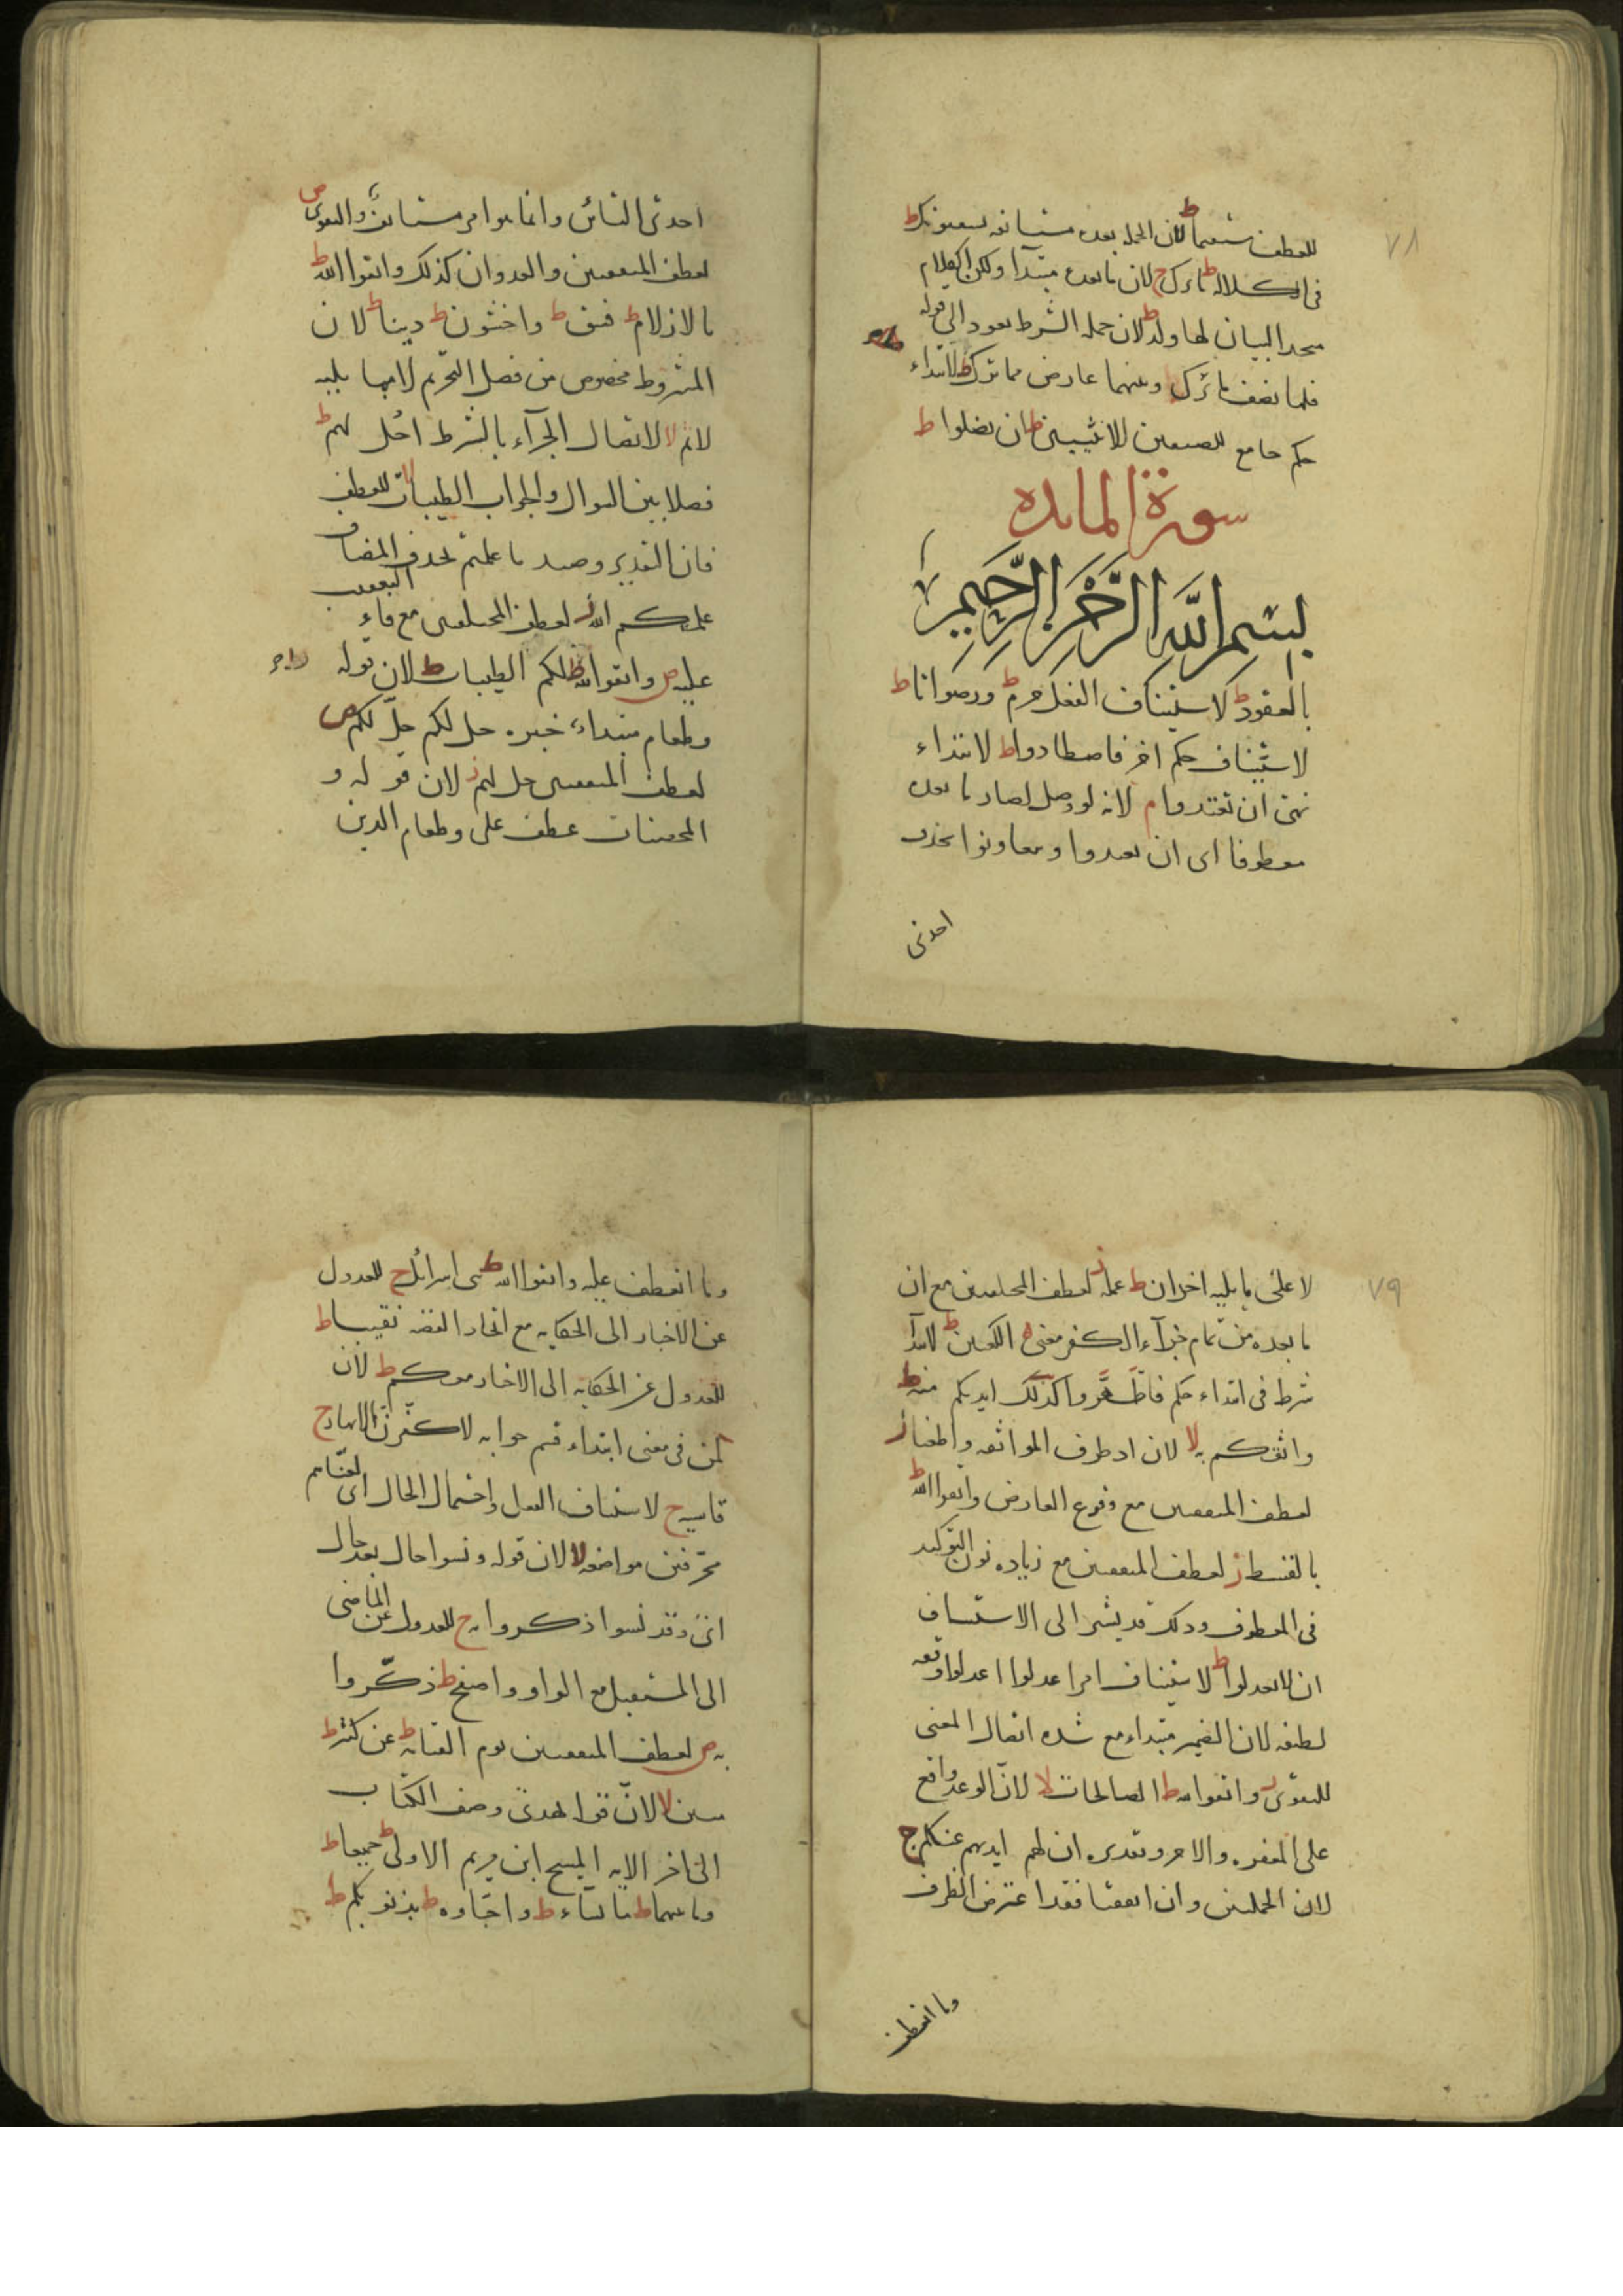 ٧٨
للعطف مستقيما ط لان الجملة بعده مستانفة يستفتونك ط
فى الكلالة ط ما ترك ج لان ما بعده مبتدأ ولكن الكلام
متحد البيان لها ولد ط لان جملة الشرط يعود الى قوله
فلها نصف ما ترك وبينهما عارض مما ترك ط لابتداء
حكم جامع للصنفين الانثيين ط ان تضلوا ط
سورة المائده
بسم الله الرحمن الرحيم
بالعقود ط لاستيناف الفعل حرم ط ورضوانا ط
لاستيناف حكم اخر فاصطادوا ط لابتداء
نهى ان تعتدوا م لانه لو وصل لصار ما بعده
معطوفا اى ان تعتدوا وتعاونوا بحذف
احدى
احدى التائين وانما هو امر مستانف والتقوى ص
لعطف المتفقين والعدوان كذلك واتقوا الله ط
بالازلام ط فسق ط واخشون ط دينا ط لان
المشروط مخصوص من فصل التحريم لا بما يليه
لاثم لا لاتصال الجزآء بالشرط احل لهم ط
فصلا بين السوال والجواب الطيبات لا للعطف
فان التقدير وصيد ما علمتم بحذف المضاف
عليكم الله ز لعطف المختلفين مع فاء التعقيب
عليه ص واتقوا الله ط لكم الطيبات ط لان قوله
وطعام مبتداء خبره حل لكم حل لكم ص
لعطف المتفقين حل لهم ز لان قوله و
المحصنات عطف على وطعام الذين
٧٩
لا على ما يليه اخدان ط عمله ز لعطف المختلفين مع ان
ما بعده من تمام جزآء الكفر معنى الكعبين ط لابتدآ
شرط فى ابتداء حكم فاطهروا كذلك ايديكم منه ط
واثقكم به لا لان اذ ظرف المواثقة واطعنا ز
لعطف المتفقين مع وقوع العارض واتقوا الله ط
بالقسط ز لعطف المتفقين مع زياده نون التوكيد
فى المعطوف وذلك قد يشير الى الاستيناف
ان لا تعدلوا ط لاستيناف امر اعدلوا اعدلوا وقفه
لطيفه لان الضمير مبتداء مع شده اتصال المعنى
للتقوى ز واتقوا الله ط الصالحات لا لان الوعد واقع
على المغفره والاجر وتقديره ان لهم ايديهم عنكم ج
لان الجملتين وان اتفقتا فقد اعترض الظرف
وما انعطف
وما انعطف عليه واتقوا الله ط بنى اسرائل ج للعدول
عن الاخبار الى الحكايه مع اتحاد القصه نقيبا ط
للعدول عن الحكايه الى الاخبار معكم ط لان
لئن فى معنى ابتداء قسم جوابه لاكفرن الانهار ج
قاسيه ج لاستيناف الفعل واحتمال الحال اى لعناهم
محرفين مواضعه لا لان قوله ونسوا حال بعد حال
اى وقد نسوا ذكروا به ج للعدول عن الماضى
الى المستقبل مع الواو واصفح ط ذكروا
به ص لعطف المتفقين يوم القيامة ط عن كثير ط
مبين لا لان قوله يهدى وصف الكتاب
الى اخر الايه المسيح ابن مريم الاولى ط جميعا ط
وما بينهما ط ما يشاء ط واحباوه ط بذنوبكم ط